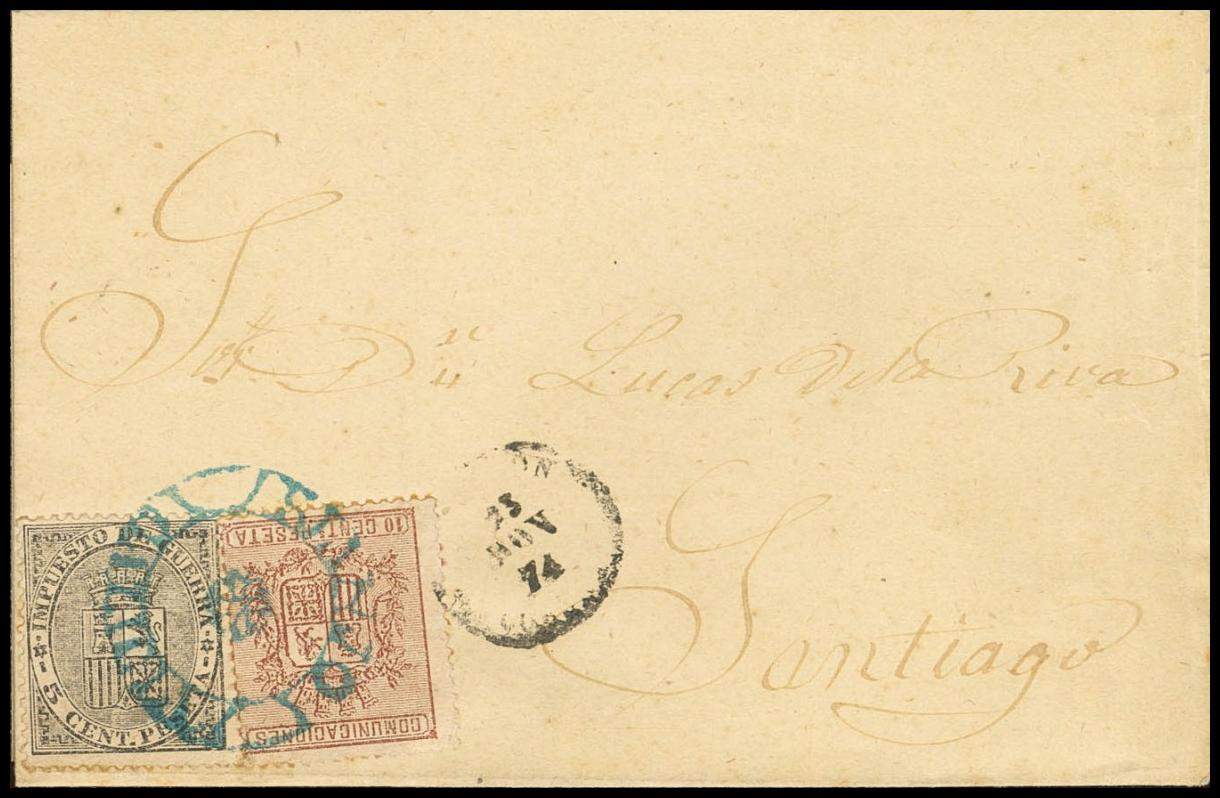 Sr. Dn. Lucas de la Riva
Santiago
25
NOV
74
IMPUESTO DE GUERRA
5 CENT. PESETA
10 CENT. PESETA
COMUNICACIONES